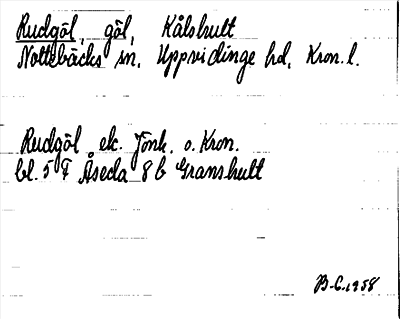 Rudgöl, göl, Kålshult
Nottebäcks sn, Uppvidinge hd, Kron. l.
Rudgöl ek. Jönk. o. Kron.
bl. 5 F Åseda 8 b Granshult
B-C. 1958